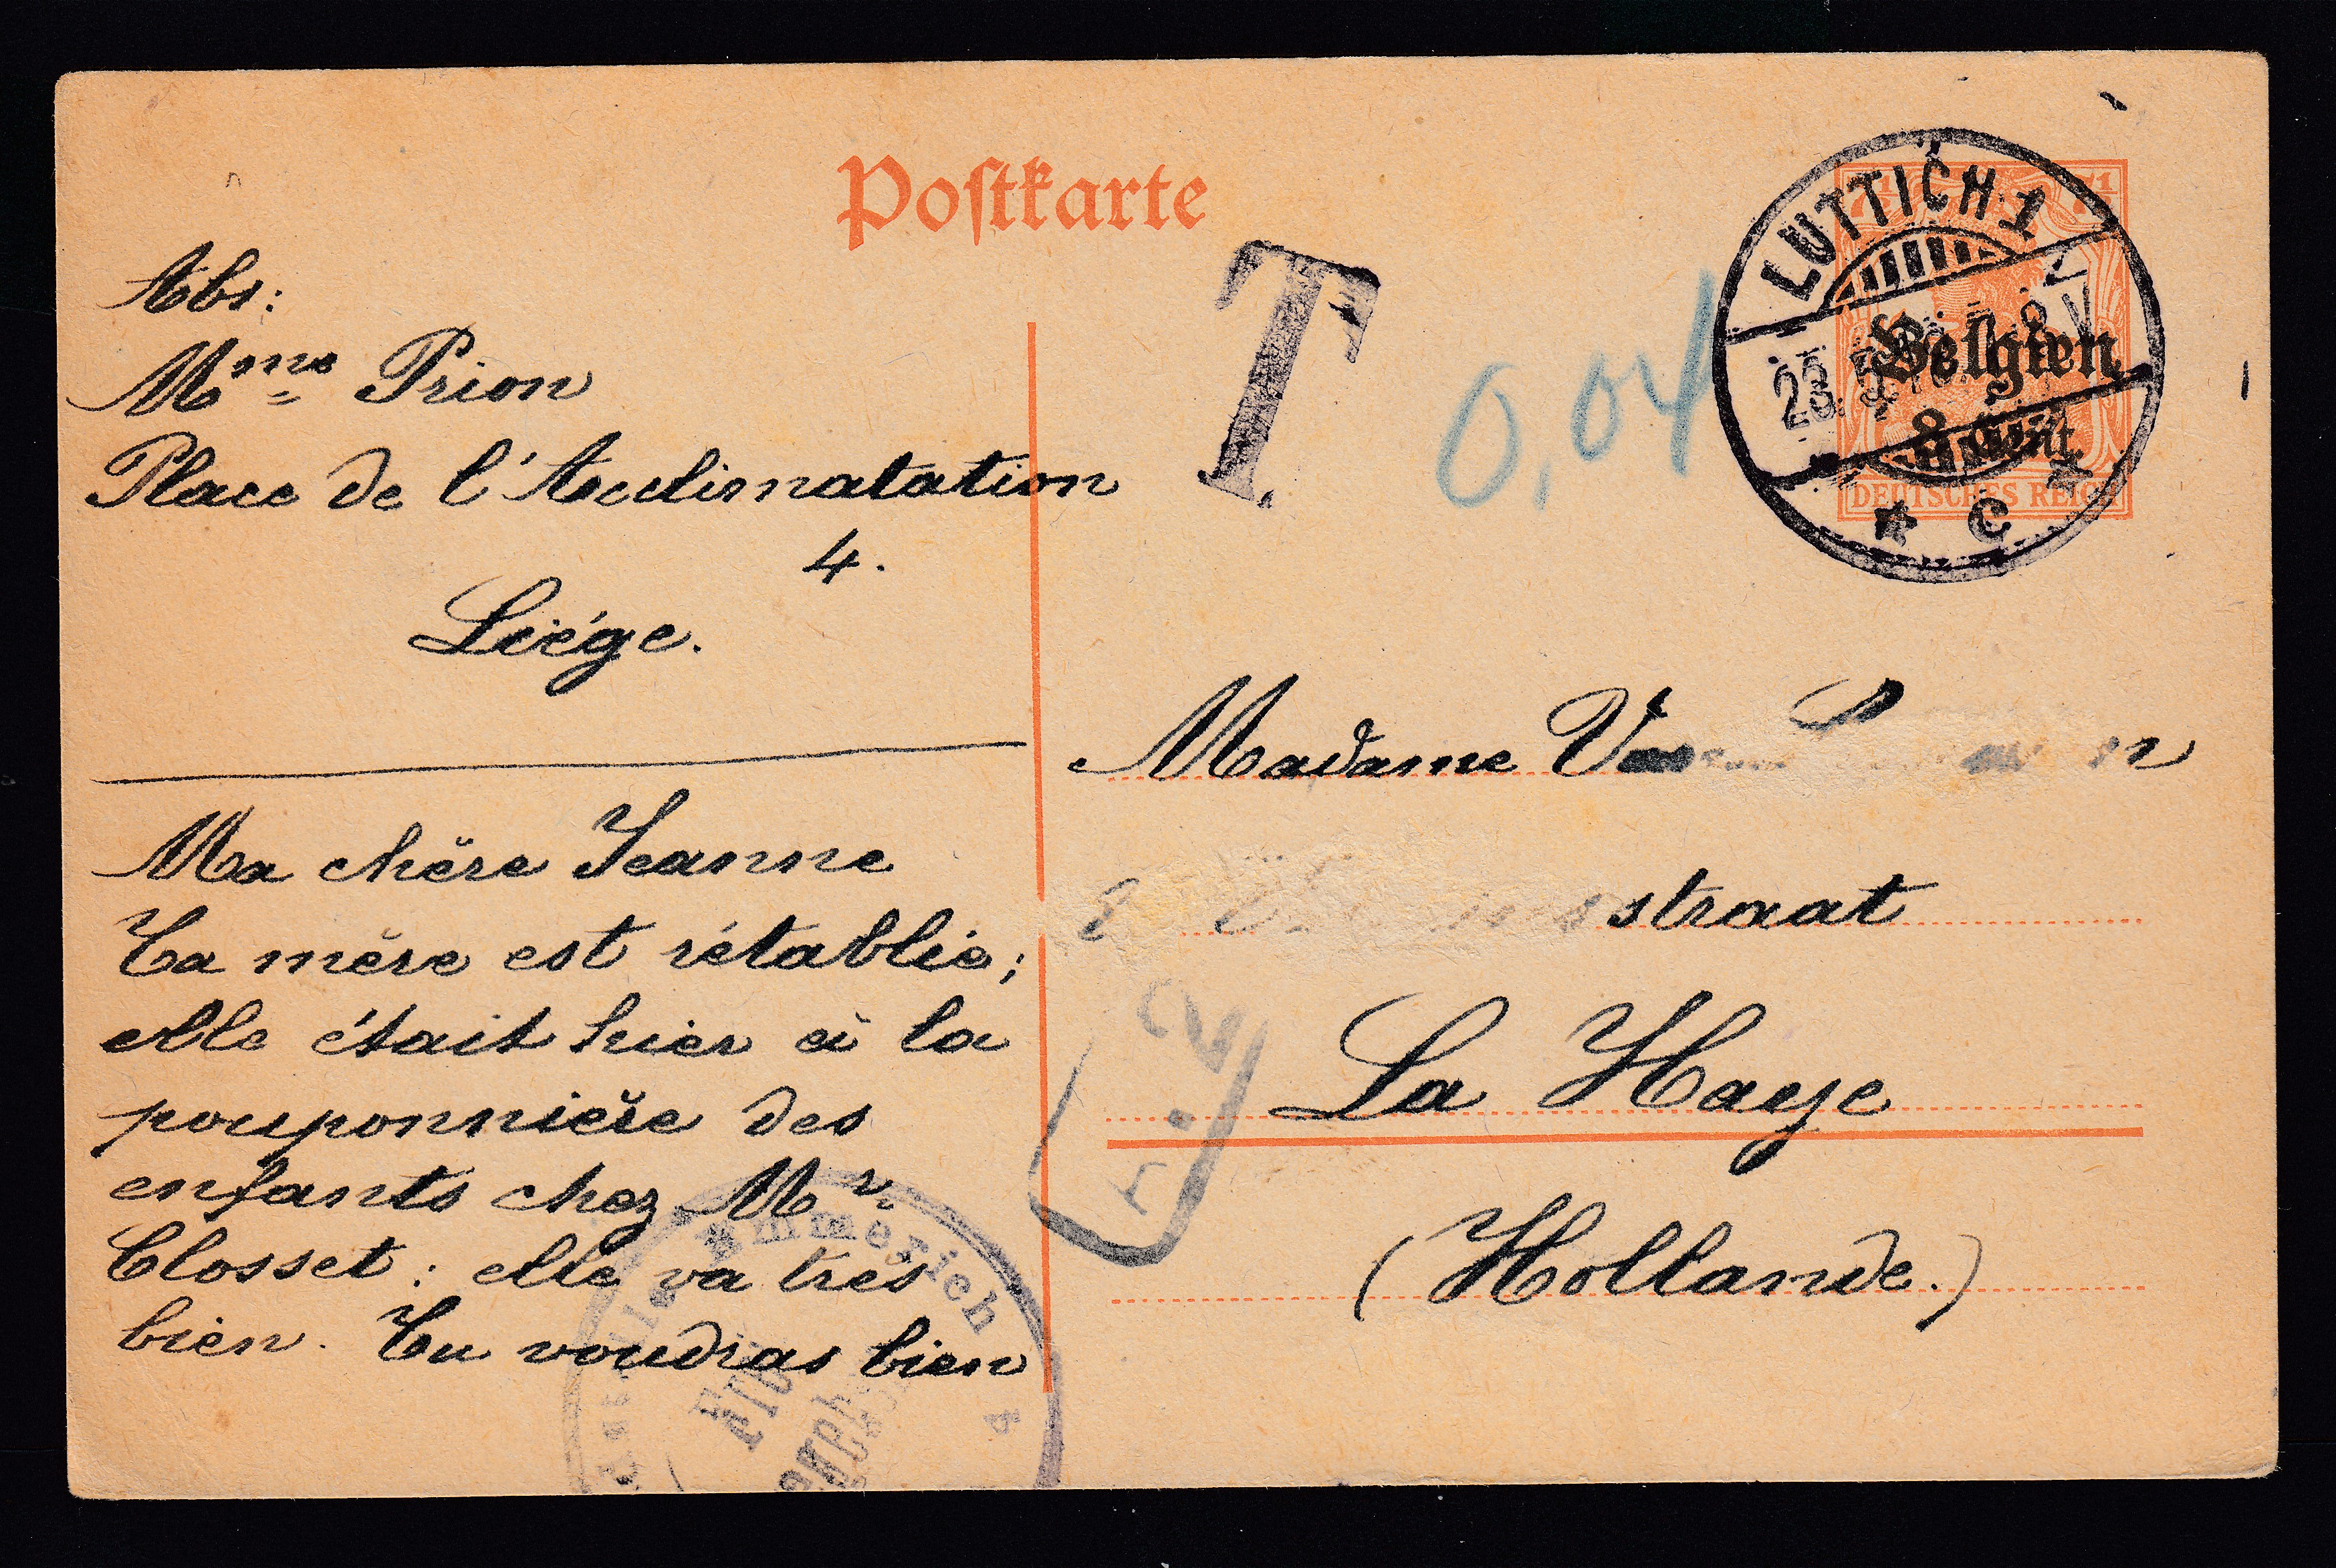 Postkarte
Abs:
Mme Prion
Place de l'Acclimatation
4.
Liége.
Ma chère Jeanne
Ta mère est rétablie;
elle était hier à la
pouponnière des
enfants chez Mr.
Closset: elle va très
bien. Tu voudras bien
T
0,04
LÜTTICH 1
Belgien
8 Cent.
DEUTSCHES REICH
* C *
Madame
straat
La Haye
(Hollande.)
Emmerich